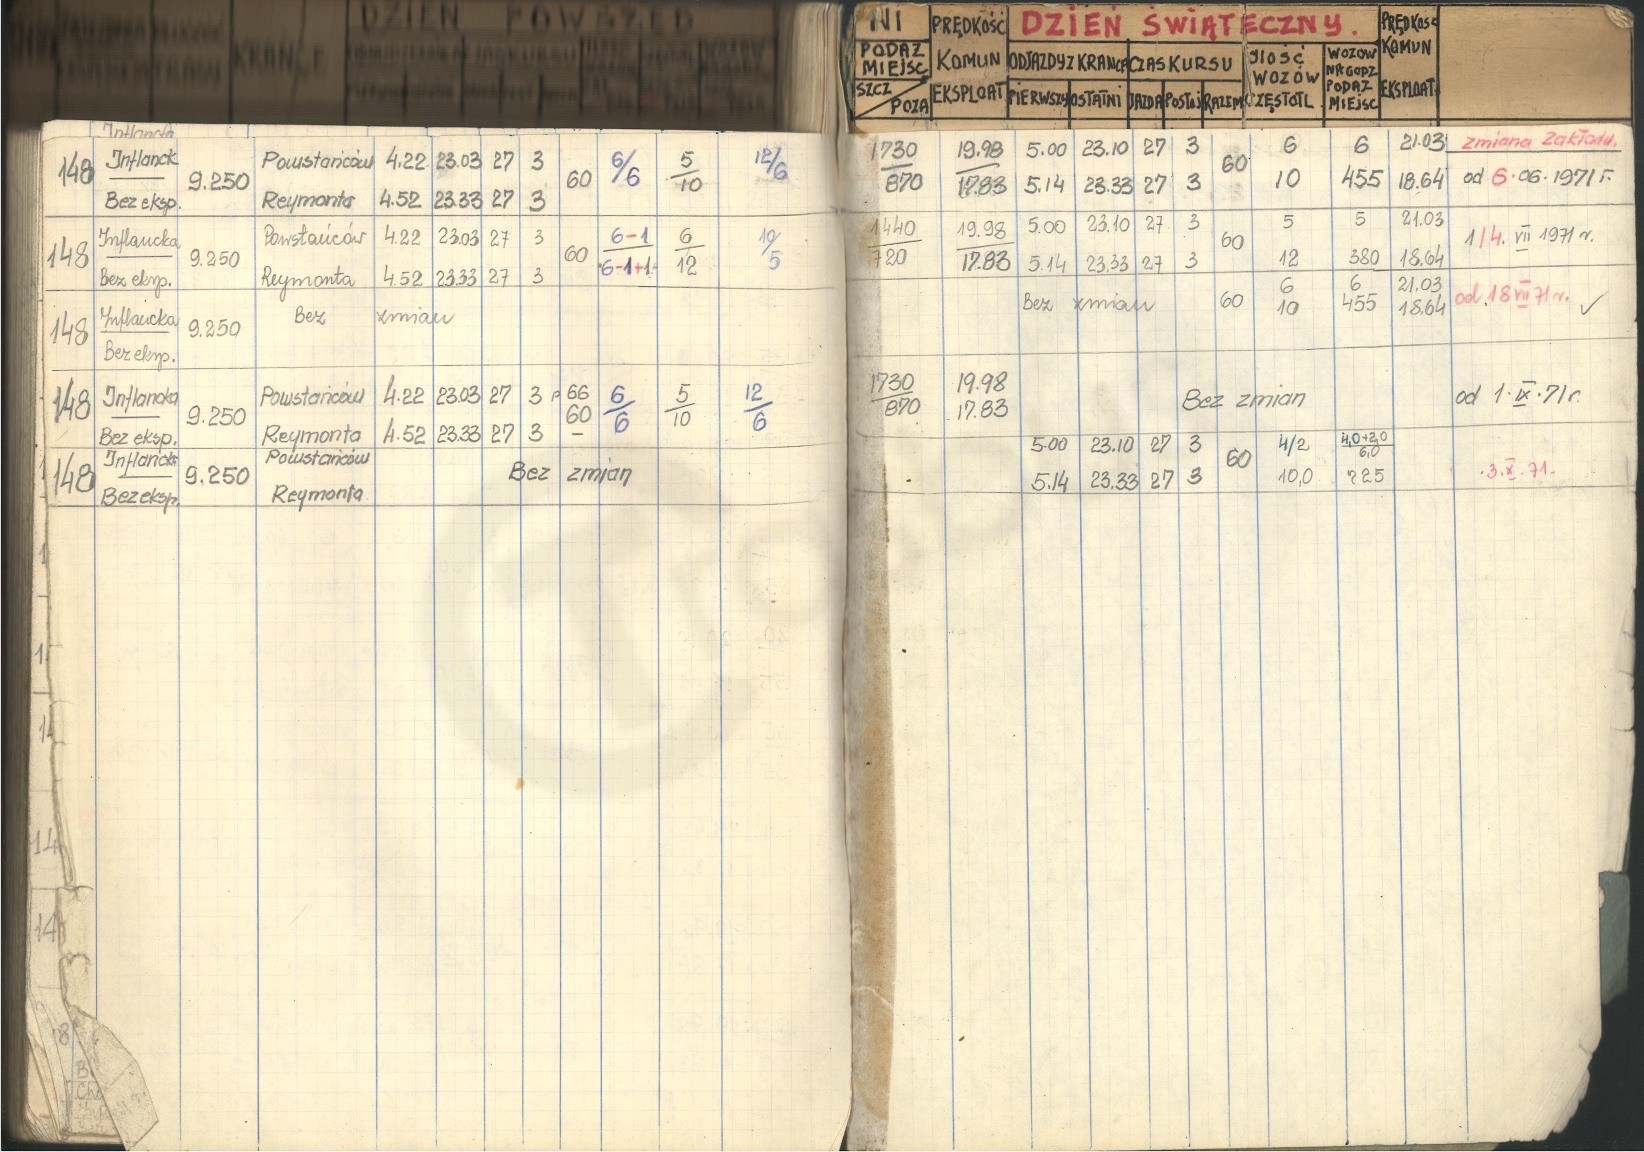 DZIEŃ POWSZED
KRAŃCE
NI
PODAŻ
MIEJSC
SZCZ
POZA
PRĘDKOŚĆ
KOMUN
EKSPLOAT
DZIEŃ ŚWIĄTECZNY.
ODJAZDY Z KRAŃCA
PIERWSZY OSTATNI
CZAS KURSU
JAZDA POSTÓJ RAZEM
ILOŚĆ
WOZÓW
CZĘSTOTL.
WOZÓW
NA GODZ
PODAŻ
MIEJSC
PRĘDKOŚĆ
KOMUN
EKSPLOAT.
Inflancka
148 Inflanck 9.250 Powstańców 4.22 23.03 27 3 60 6/6 5/10 12/6 1730/870 19.98 5.00 23.10 27 3 60 6 6 21.03 zmiana Zakładu.
Bez eksp. Reymonta 4.52 23.33 27 3 17.83 5.14 23.33 27 3 10 455 18.64 od 6.06.1971 r.
148 Inflancka 9.250 Powstańców 4.22 23.03 27 3 60 6-1 6 10 1440 19.98 5.00 23.10 27 3 60 5 5 21.03 1/4. VII 1971 r.
Bez eksp. Reymonta 4.52 23.33 27 3 6-1+1 12 5 720 17.83 5.14 23.33 27 3 12 380 18.64
148 Inflancka 9.250 Bez zmian Bez zmian 60 6 6 21.03 od 18 VII 71 r. ✓
Bez eksp. 10 455 18.64
148 Inflancka 9.250 Powstańców 4.22 23.03 27 3 66 6 5 12 1730 19.98 Bez zmian od 1.IX.71 r.
Bez eksp. Reymonta 4.52 23.33 27 3 60 6 10 6 870 17.83
–
148 Inflancka 9.250 Powstańców Bez zmian 5.00 23.10 27 3 60 4/2 4,0+2,0 3.X.71.
6,0
Bez eksp. Reymonta 5.14 23.33 27 3 10,0 225